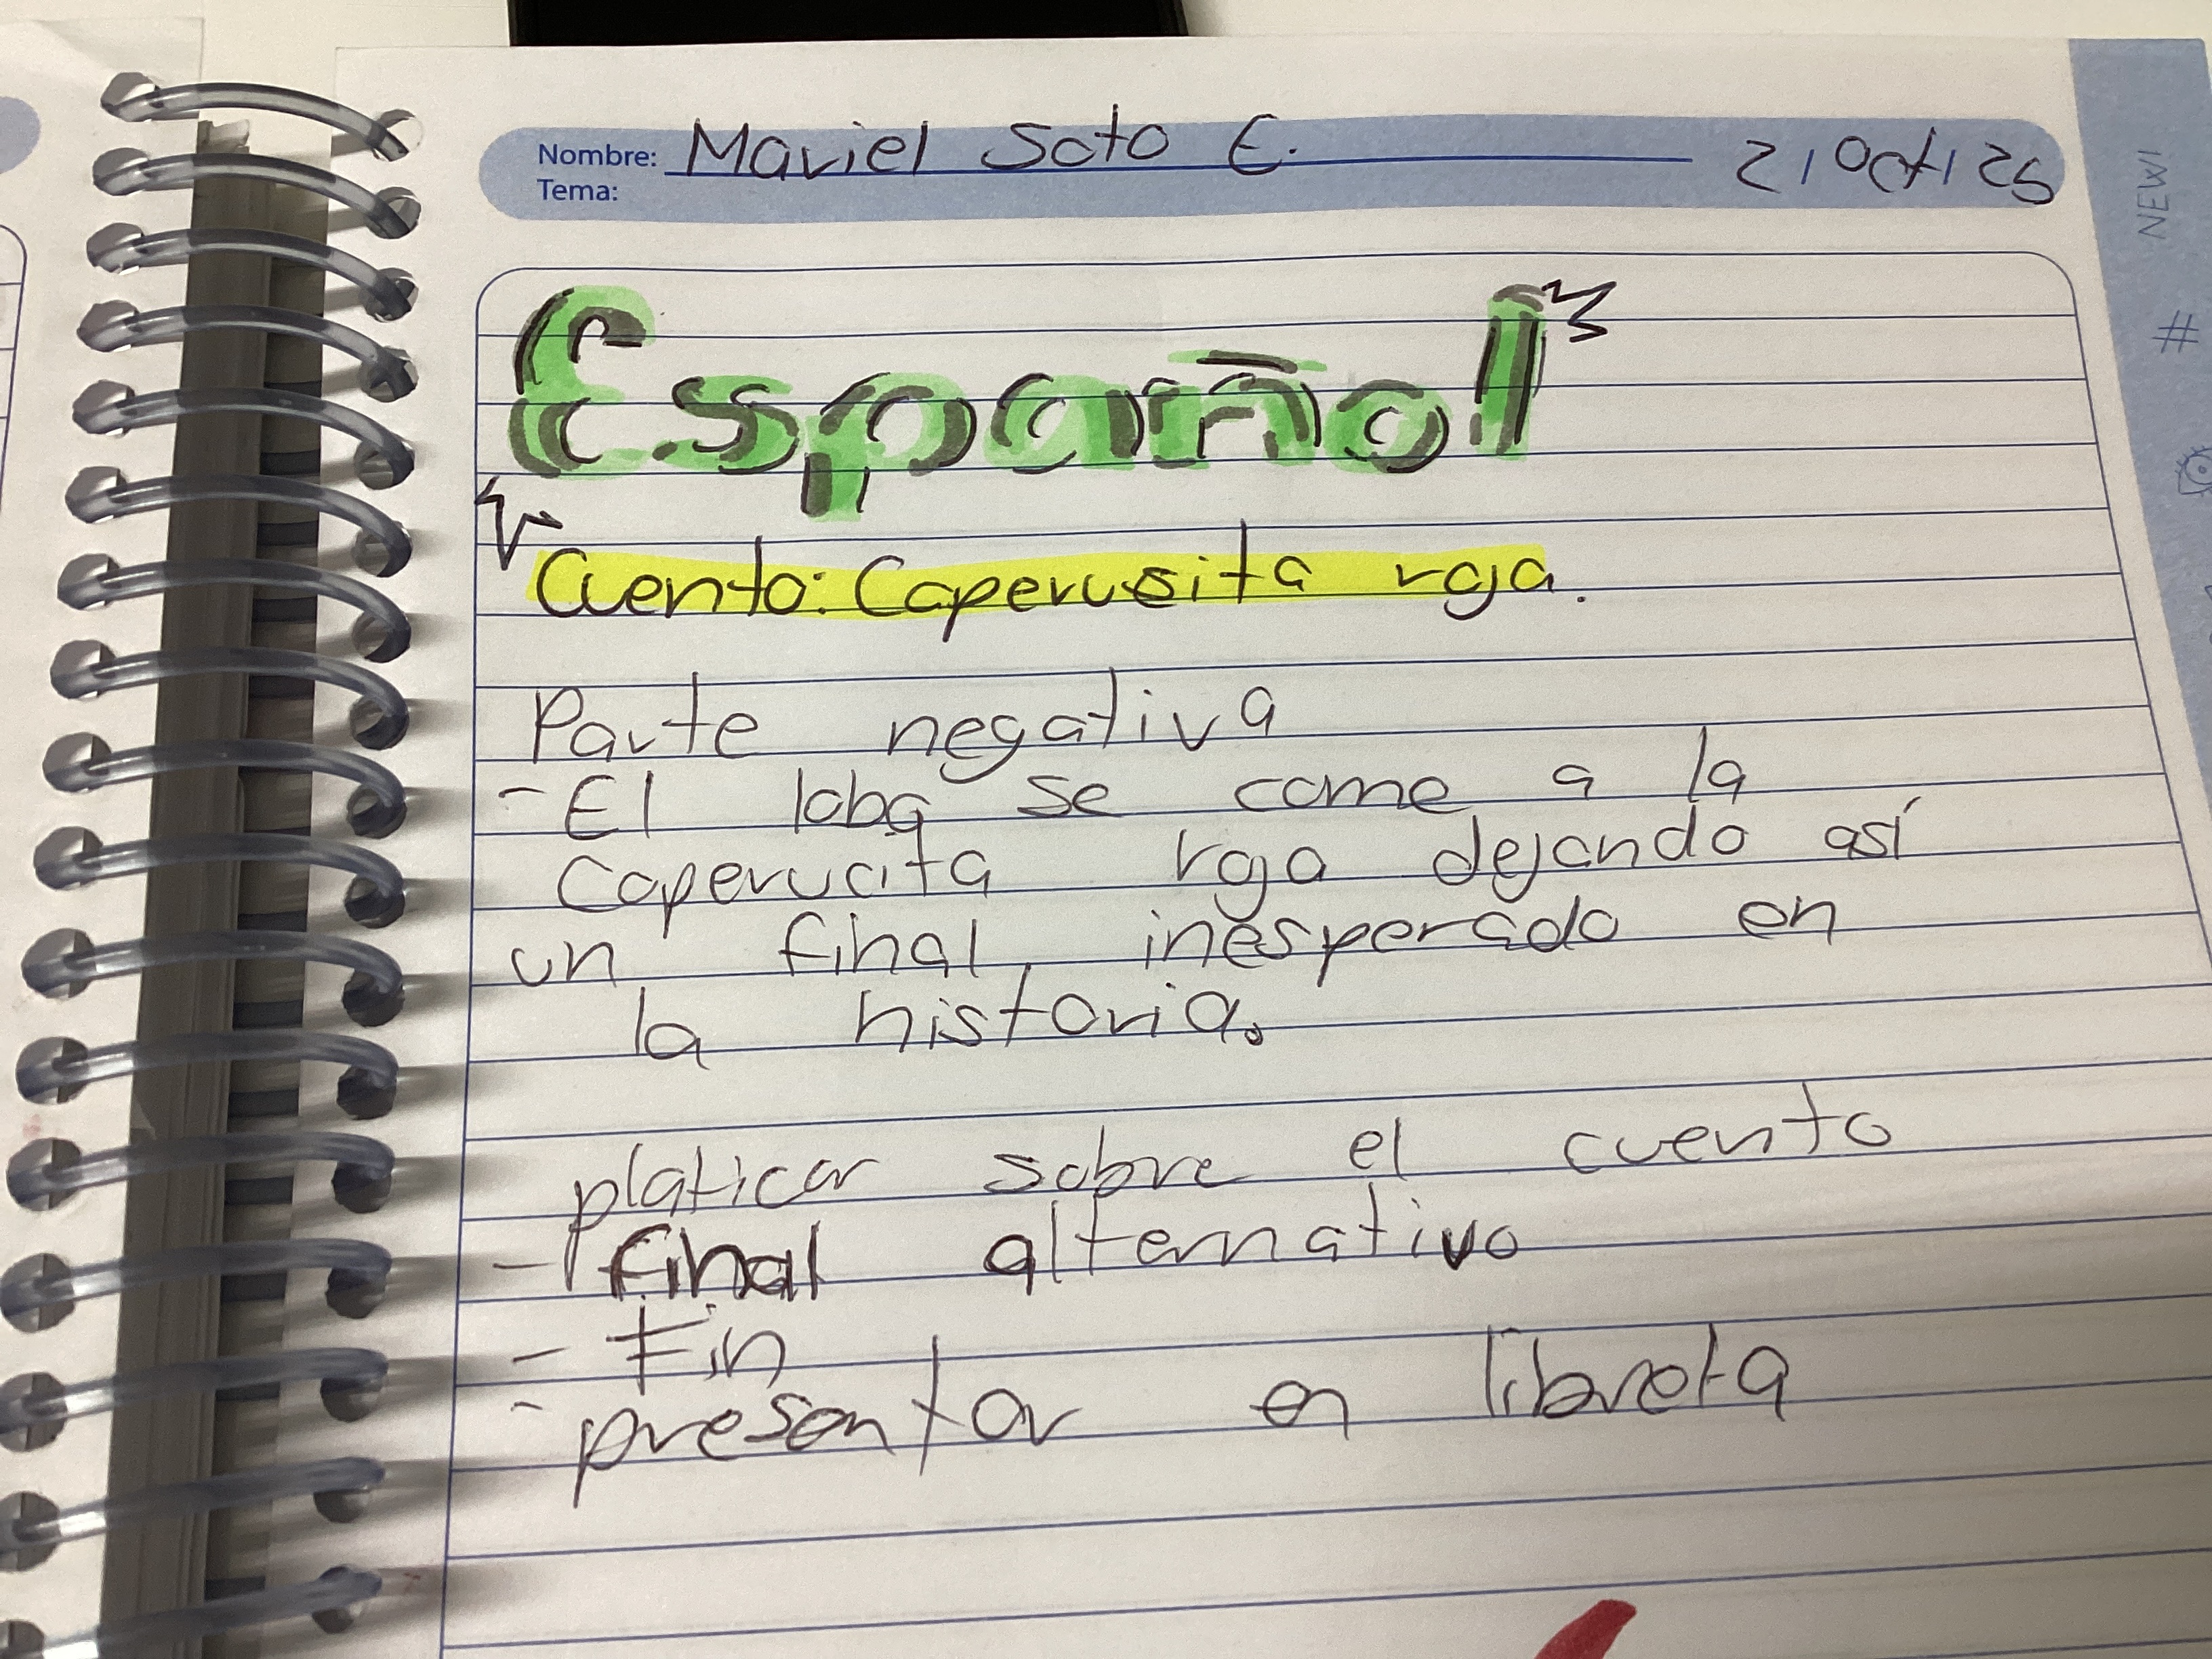 Nombre: Mariel Soto E. 2/Oct/25
Tema:
NEW!
#
Español
Cuento: Caperusita roja.
Parte negativa
- El lobo se come a la
Caperucita roja dejando así
un final inesperado en
la historia.
platicar sobre el cuento
- final alternativo
- Fin
- presentar en libreta